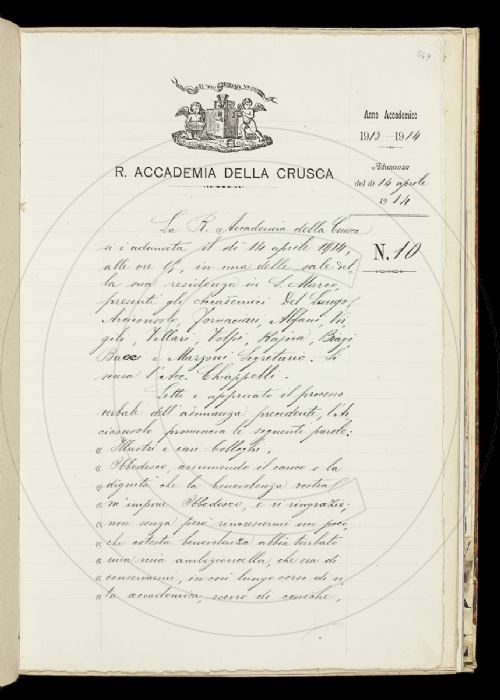 559
IL PIÙ BEL FIOR NE COGLIE
R. ACCADEMIA DELLA CRUSCA
Anno Accademico
1913-1914
Adunanza
del dì 14 aprile
1914
N. 10
La R. Accademia della Crusca
si è adunata il dì 14 aprile 1914,
alle ore 15, in una delle sale del-
la sua residenza in S. Marco,
presenti gli Accademici Del Lungo
Arciconsolo, Tortoli, Alfani, Vir
gili, Villari, Volpi, Rajna, Biagi
Bacci e Mazzoni Segretario. Si
scusa l'Acc. Chiappelli.
Letto e approvato il processo
verbale dell'adunanza precedente, l'Ar
ciconsolo pronuncia le seguenti parole:
« Illustri e cari Colleghi,
« Obbedisco, assumendo il carico e la
« dignità che la benevolenza vostra
« m'impone. Obbedisco, e vi ringrazio;
« non senza però rincrescermi un poco,
« che cotesta benevolenza abbia turbato
« una mia ambizioncella, che era di
« conservarmi, in così lungo corso di vi,
« ta accademica, scevro di cariche,